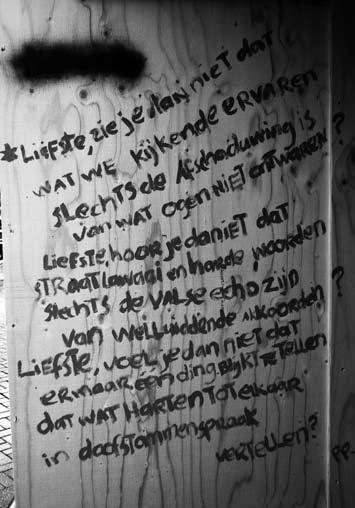 * LIEFSTE, zie je dan niet dat
wat we kijkende ervaren
slechts de afschaduwing is
van wat ogen niet ontwaren?
Liefste hoor je dan niet dat
straatlawaai en harde woorden
slechts de valse echo zijn
van welluidende akkoorden?
Liefste, voel je dan niet dat
er maar één ding blijkt te tellen
dat wat harten tot elkaar
in doofstommenspraak
vertellen?
PP.